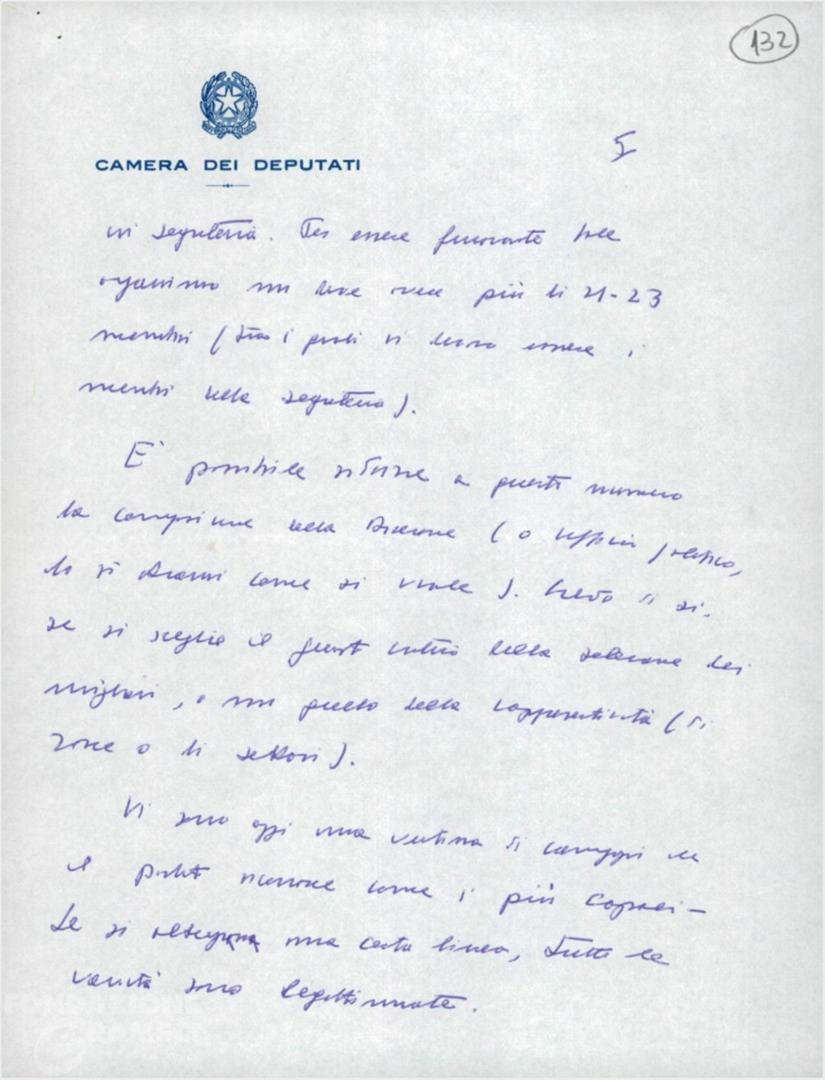 132
CAMERA DEI DEPUTATI
5
in segreteria. Per essere funzionante tale
organismo non deve avere più di 21-23
membri (tra i quali vi devono essere i
membri della segreteria).
E' possibile ridurre a questo numero
la composizione della Direzione ( o ufficio politico,
lo si chiami come si vuole ). Credo di si.
se si sceglie il giusto criterio della selezione dei
migliori, e non quello della rappresentatività (di
zone o di settori).
Vi sono oggi una ventina di compagni che
il partito riconosce come i più capaci -
Se si una certa linea, tutte le
varietà sono legittimate.